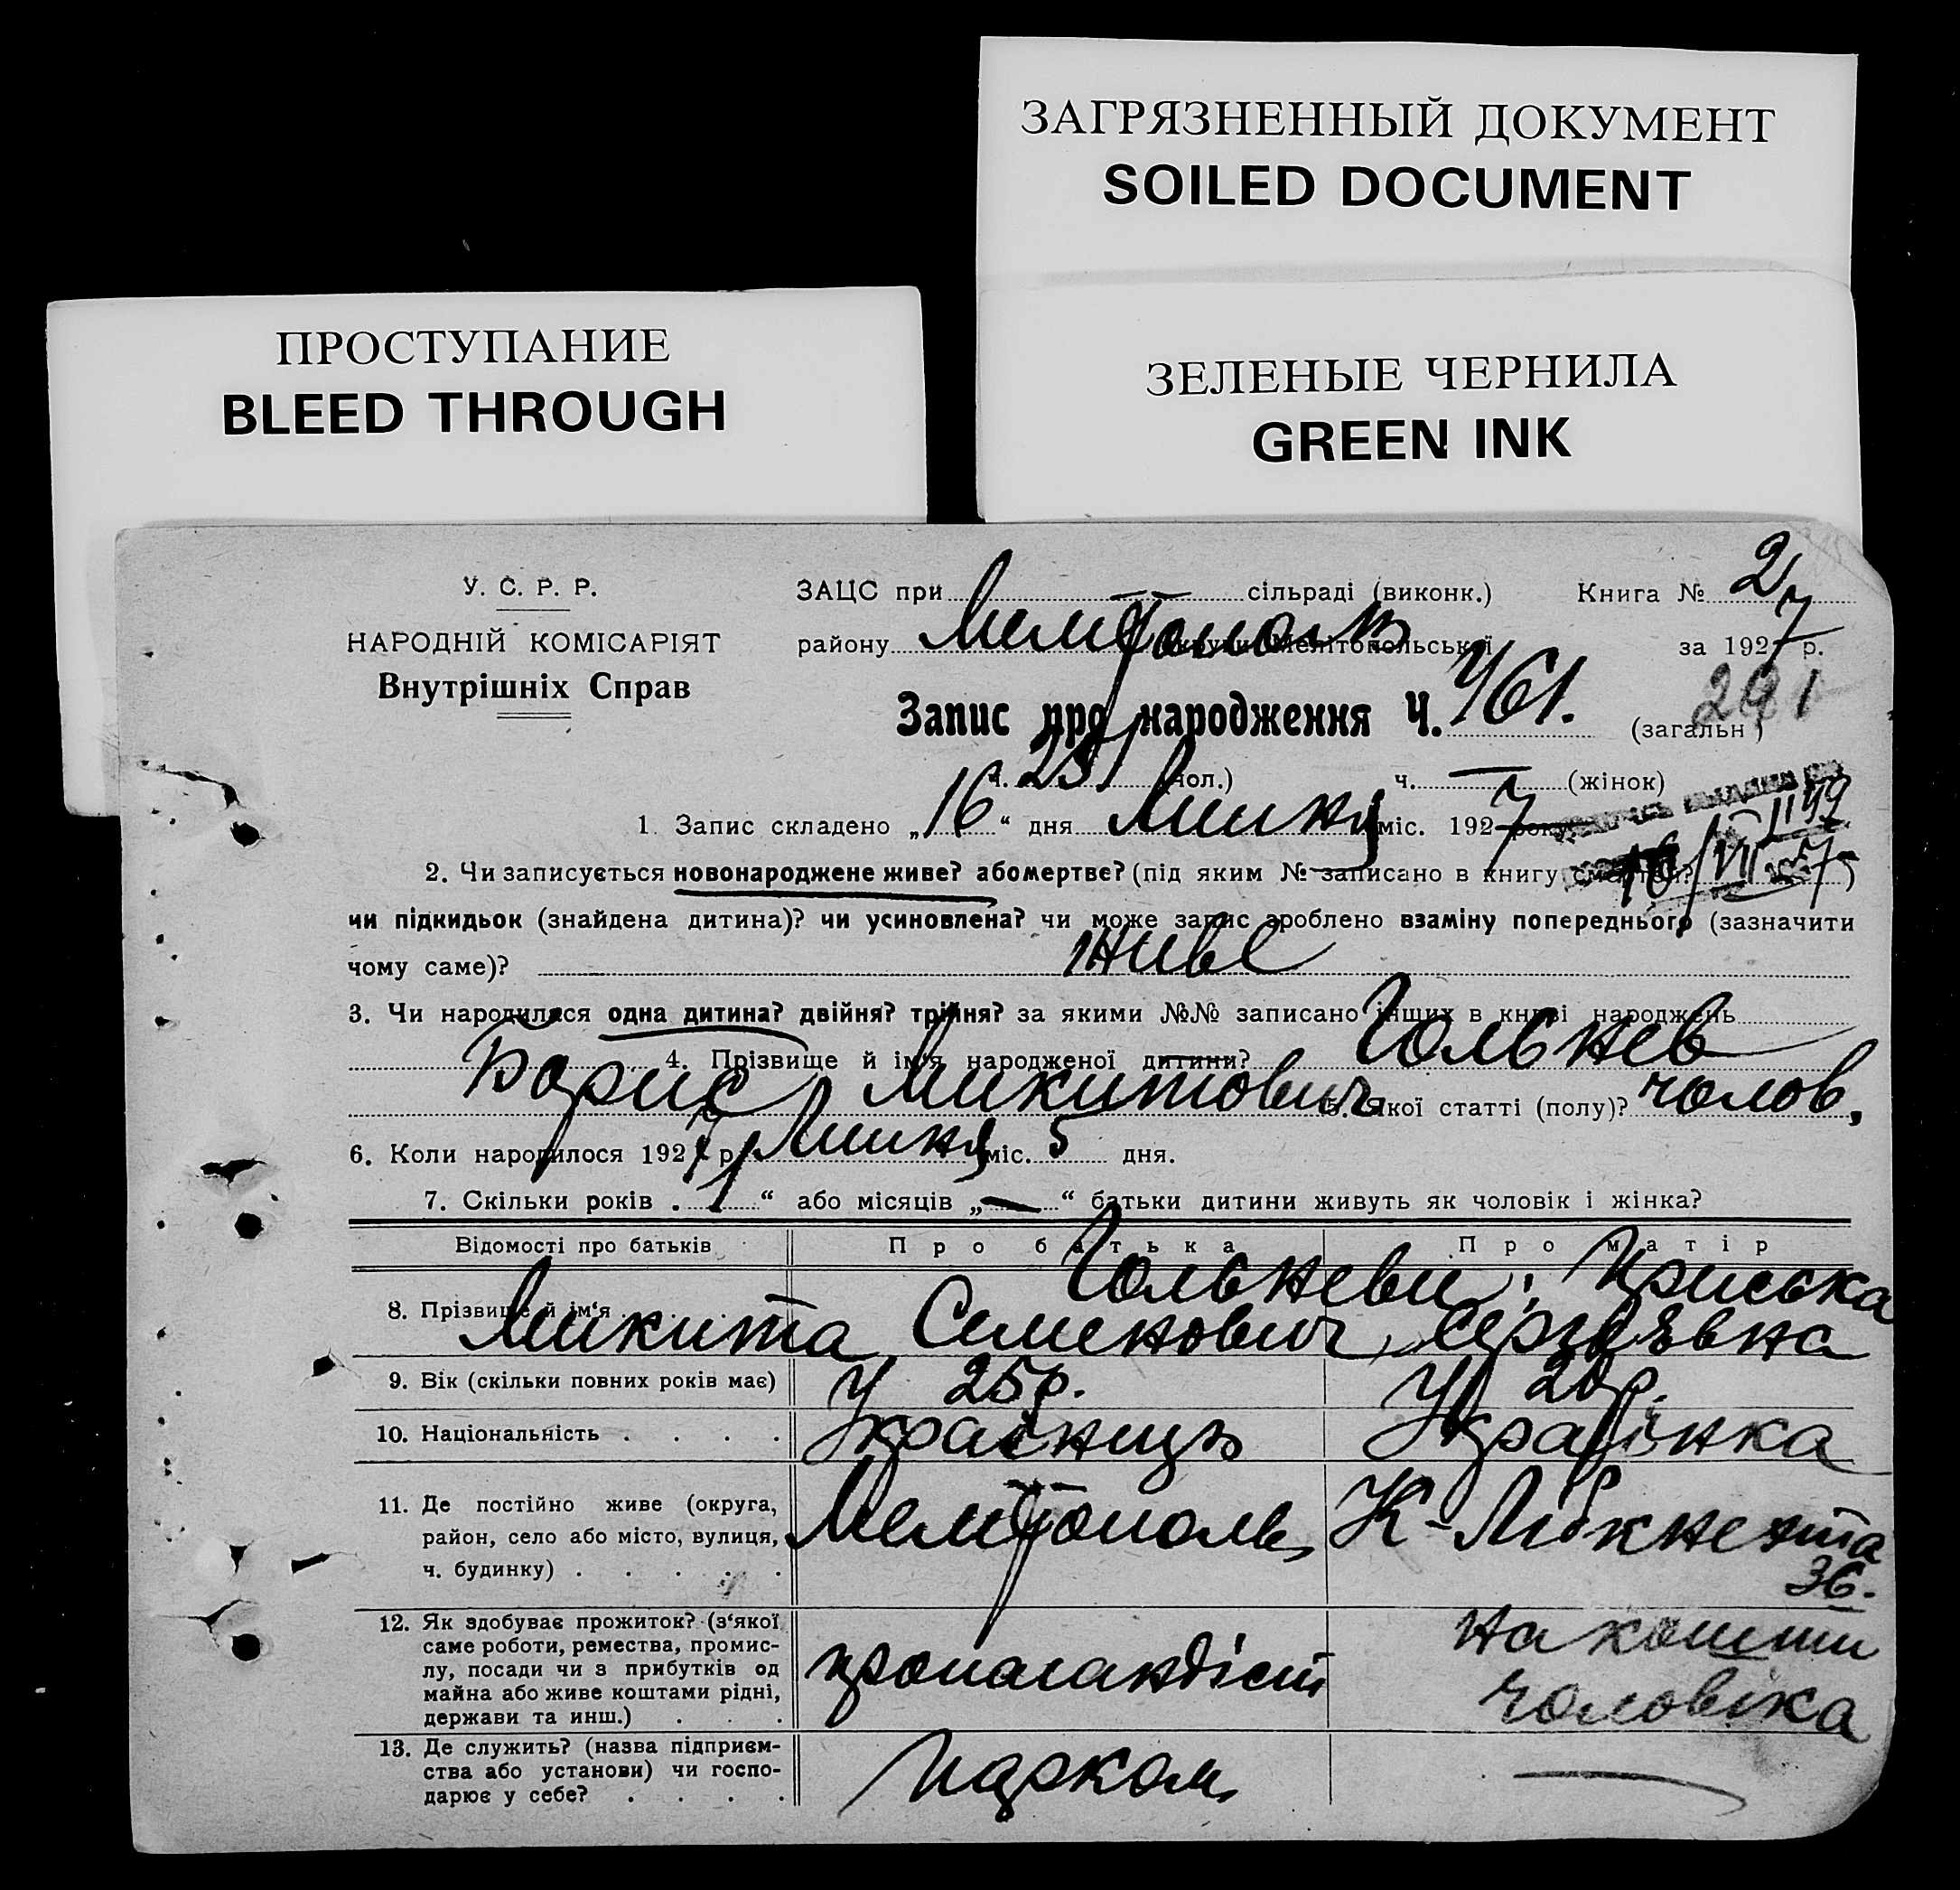 ЗАГРЯЗНЕННЫЙ ДОКУМЕНТ
SOILED DOCUMENT
ПРОСТУПАНИЕ
BLEED THROUGH
ЗЕЛЕНЫЕ ЧЕРНИЛА
GREEN INK
У. С. Р. Р.
НАРОДНІЙ КОМІСАРІЯТ
Внутрішніх Справ
ЗАЦС при сільраді (виконк.) Книга № 2
району Мелітополь округи Мелітопольської за 1927 р.
Запис про народження Ч. 461. (загальн) 291
ч. 231 (чол.) ч. — (жінок)
1. Запис складено „16“ дня Липня міс. 1927 року
16/VII 27
2. Чи записується новонароджене живе? або мертве? (під яким № записано в книгу смертей? )
чи підкидьок (знайдена дитина)? чи усиновлена? чи може запис зроблено взаміну попереднього (зазначити
чому саме)? живе
3. Чи народилася одна дитина? двійня? трійня? за якими №№ записано інших в книзі народжень
4. Прізвище й ім'я народженої дитини? Гольнев
Борис Микитович 5. Якої статті (полу)? чолов.
6. Коли народилося 1927 р. Липня міс. 5 дня.
7. Скільки років „1“ або місяців „—“ батьки дитини живуть як чоловік і жінка?
Відомості про батьків Про батька Про матір
8. Прізвище й ім'я Гольневи; Приська
Микита Семенович, Сергієвна
9. Вік (скільки повних років має) 25р. 20р.
10. Національність Українець Українка
11. Де постійно живе (округа,
район, село або місто, вулиця,
ч. будинку) Мелітополь, К-Лібкнехта
36.
12. Як здобуває прожиток? (з'якої
саме роботи, ремества, промис-
лу, посади чи з прибутків од
майна або живе коштами рідні,
держави та инш.) пропагандіст на кошти
чоловіка
13. Де служить? (назва підприєм-
ства або установи) чи госпо-
дарює у себе? Парком —